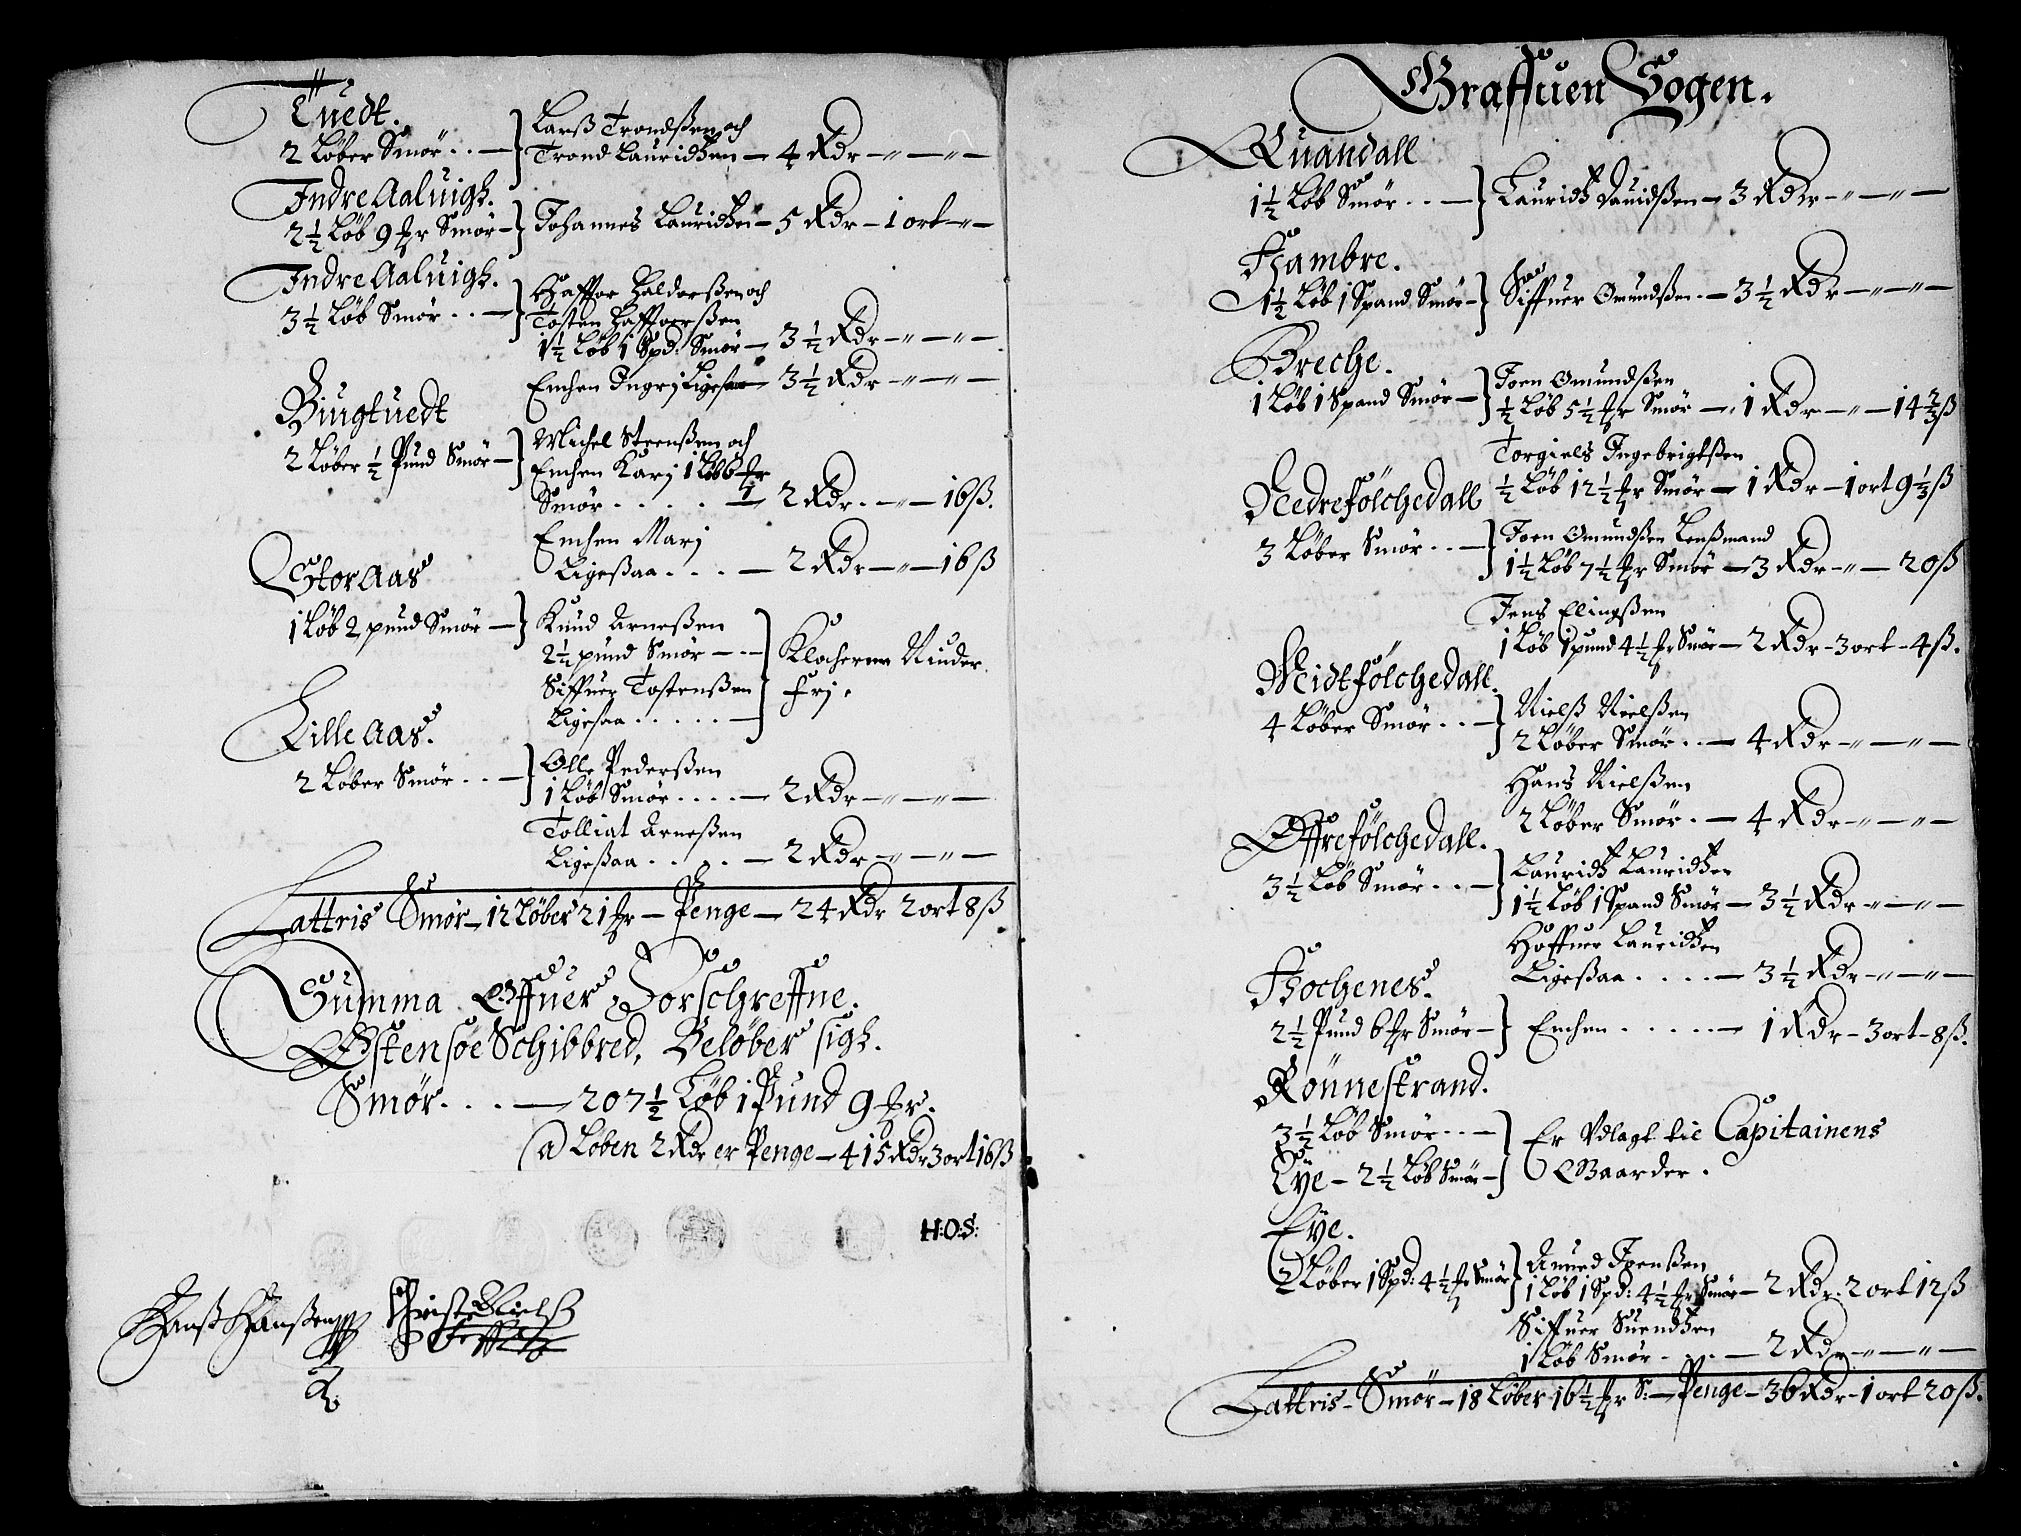 Tuedt.
2 Løber Smör . . — } Larß Trondßen och
Trond Lauridtzen — 4 Rdr — „ — „ —
Indre Aaluigh.
2½ Løb 9 mr Smör — } Johannes Lauridtzen — 5 Rdr — 1 ort — „ —
Indre Aaluigh.
3½ Løb Smör . . — } Haffor Haldorßen och
Tosten Haffuorßen
1½ Løb 1 Spd: Smör — 3½ Rdr — „ — „ —
Enchen Ingrj Ligesaa — 3½ Rdr — „ — „ —
Biugtuedt
2 Løber ½ Pund Smör — } Michel Steenßen och
Enchen Karj 1 Løb 6 mr
Smör . . . . — 2 Rdr . — „ — 16 ß.
Enchen Marj
Ligeßaa . . . — 2 Rdr — „ — 16 ß
Stor Aas
1 Løb 2 pund Smör — } Knud Arneßen
2½ pund Smör — . — } Klocheren Niuder
Siffuer Tostenßen frj.
Ligesaa . . . . . —
Lille Aas.
2 Løber Smör . . — } Olle Pederßen
1 Løb Smör . . . . — 2 Rdr — „ — „ —
Tolliat Arneßen
Ligeßaa . . . . . — 2 Rdr — „ — „ —
Lattris Smör — 12 Løber 21 mr — Penge — 24 Rdr 2 ort 8 ß
Summa Offuer Forschreffne.
Østensøe Schibbred, Beløber sigh.
Smör . . . — 207½ Løb 1 Pund 9 mr.
@ Løben 2 Rdr er Penge — 415 Rdr 3 ort 16 ß
H:O:S:
Hanß Hanßen
Christ Nielß
Graffuen Sogen.
Quandall
1½ Løb Smör . . — } Lauridtz Dauidßen — 3 Rdr — „ — „ —
Hambre.
1½ Løb 1 Spand Smör — } Siffuer Omundßen . — 3½ Rdr — „ — „ —
Breche.
1 Løb 1 Spand Smör — } Joen Omundßen
½ Løb 5½ mr Smör — „ 1 Rdr — „ — 14⅔ ß
Torgiels Ingebrigtßen
½ Løb 12½ mr Smör — 1 Rdr — 1 ort 9⅓ ß
Nedre fölchedall
3 Løber Smör . . — } Joen Omundßen Lenßmand
1½ Løb 7½ mr Smör — 3 Rdr — „ — 20 ß
Jens Elingßen
1 Løb 1 pund 4½ mr Smör — 2 Rdr — 3 ort — 4 ß.
Midt fölchedall.
4 Løber Smör . . — } Nielß Nielßen
2 Løber Smör . . — 4 Rdr — „ — „ —
Hans Nielßen
2 Løber Smör . — 4 Rdr — „ — „ —
Øffre fölchedall.
3½ Løb Smör . . — } Lauridtz Lauridtzen
1½ Løb 1 Spand Smör — 3½ Rdr — „ — „ —
Haffuer Lauridtzen
Ligeßaa . . . . — 3½ Rdr — „ — „ —
Hochenes.
2½ Pund 6 mr Smör — } Enchen . . . . . — 1 Rdr — 3 ort — 8 ß.
Rönnestrand.
3½ Løb Smör . . — } Er Vdlagt til Capitainens
Eÿe — 2½ Løb Smör — Gaarder.
Eÿe.
2 Løber 1 Spd: 4½ mr Smör } Amund Joenßen
1 Løb 1 Spd: 4½ mr Smör — 2 Rdr . 2 ort 12 ß
Siffuer Suendtzen
1 Løb Smör . . . — 2 Rdr — „ — „ —
Lattris — Smör — 18 Løber 16½ mr S: — Penge — 36 Rdr — 1 ort 20 ß.